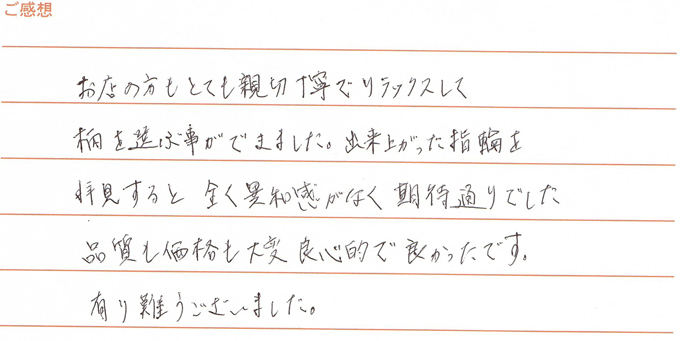 ご感想
お店の方もとても親切丁寧でリラックスして
柄を選ぶ事ができました。出来上がった指輪を
拝見すると全く異和感がなく期待通りでした
品質も価格も大変良心的で良かったです。
有り難うございました。